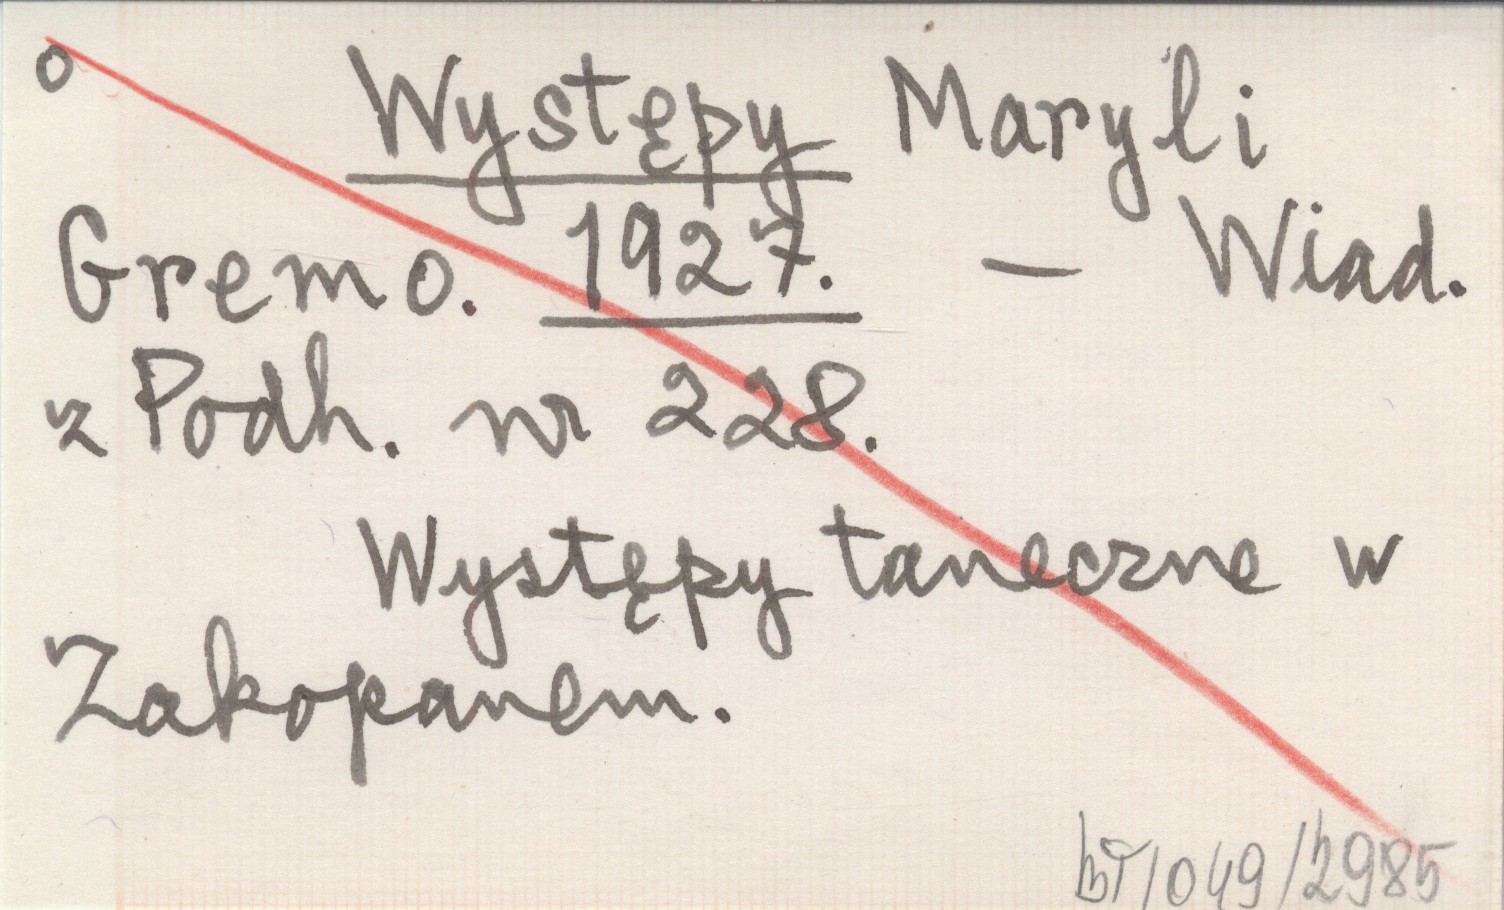 o Występy Maryli
Gremo. 1927. — Wiad.
z Podh. nr 228.
Występy taneczne w
Zakopanem.
/049/2985